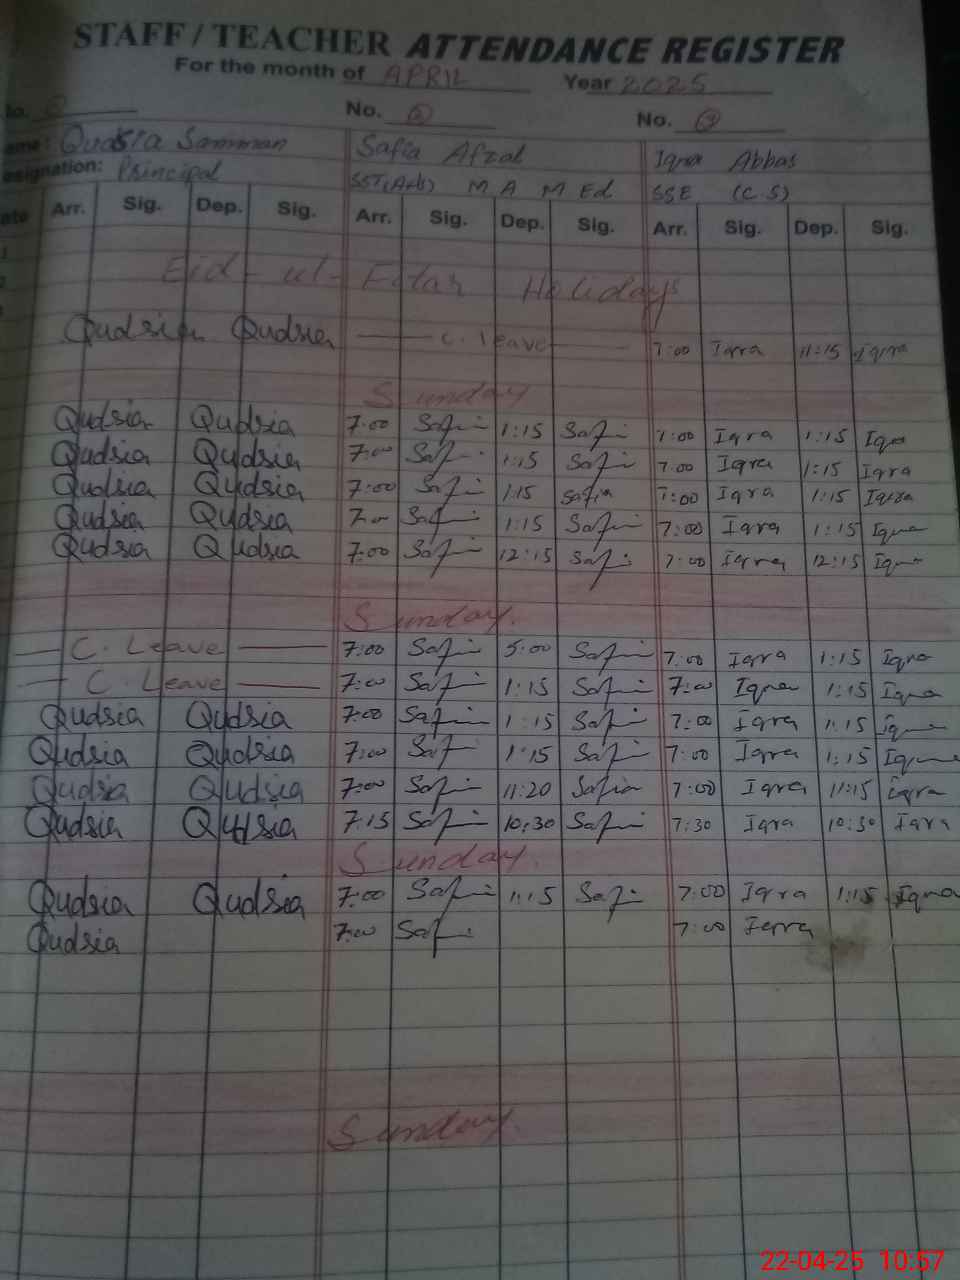 STAFF / TEACHER ATTENDANCE REGISTER
For the month of APRIL Year 2025
No. No. 2 No. 3
Name: Qudsia Samman Safia Afzal Iqra Abbas
Designation: Principal SST(Arb) M A M Ed SSE (C.S)
Date Arr. Sig. Dep. Sig. Arr. Sig. Dep. Sig. Arr. Sig. Dep. Sig.
Eid-ul-Fitar Holidays
Qudsia Qudsia C. leave 7:00 Iqra 11:15 Iqra
Sunday
Qudsia Qudsia 7:00 Safi 1:15 Safi 7:00 Iqra 1:15 Iqra
Qudsia Qudsia 7:00 Safi 1:15 Safi 7:00 Iqra 1:15 Iqra
Qudsia Qudsia 7:00 Safi 1:15 Safia 7:00 Iqra 1:15 Iqra
Qudsia Qudsia 7:00 Safi 1:15 Safi 7:00 Iqra 1:15 Iqra
Qudsia Qudsia 7:00 Safi 12:15 Safi 7:00 Iqra 12:15 Iqra
Sunday.
C. Leave 7:00 Safi 5:00 Safi 7:00 Iqra 1:15 Iqra
C. Leave 7:00 Safi 1:15 Safi 7:00 Iqra 1:15 Iqra
Qudsia Qudsia 7:00 Safi 1:15 Safi 7:00 Iqra 1:15 Iqra
Qudsia Qudsia 7:00 Safi 1:15 Safi 7:00 Iqra 1:15 Iqra
Qudsia Qudsia 7:00 Safi 11:20 Safia 7:00 Iqra 11:15 Iqra
Qudsia Qudsia 7:15 Safi 10:30 Safi 7:30 Iqra 10:30 Iqra
Sunday.
Qudsia Qudsia 7:00 Safi 1:15 Safi 7:00 Iqra 1:15 Iqra
Qudsia 7:00 Safi 7:00 Iqra
Sunday.
22-04-25 10:57